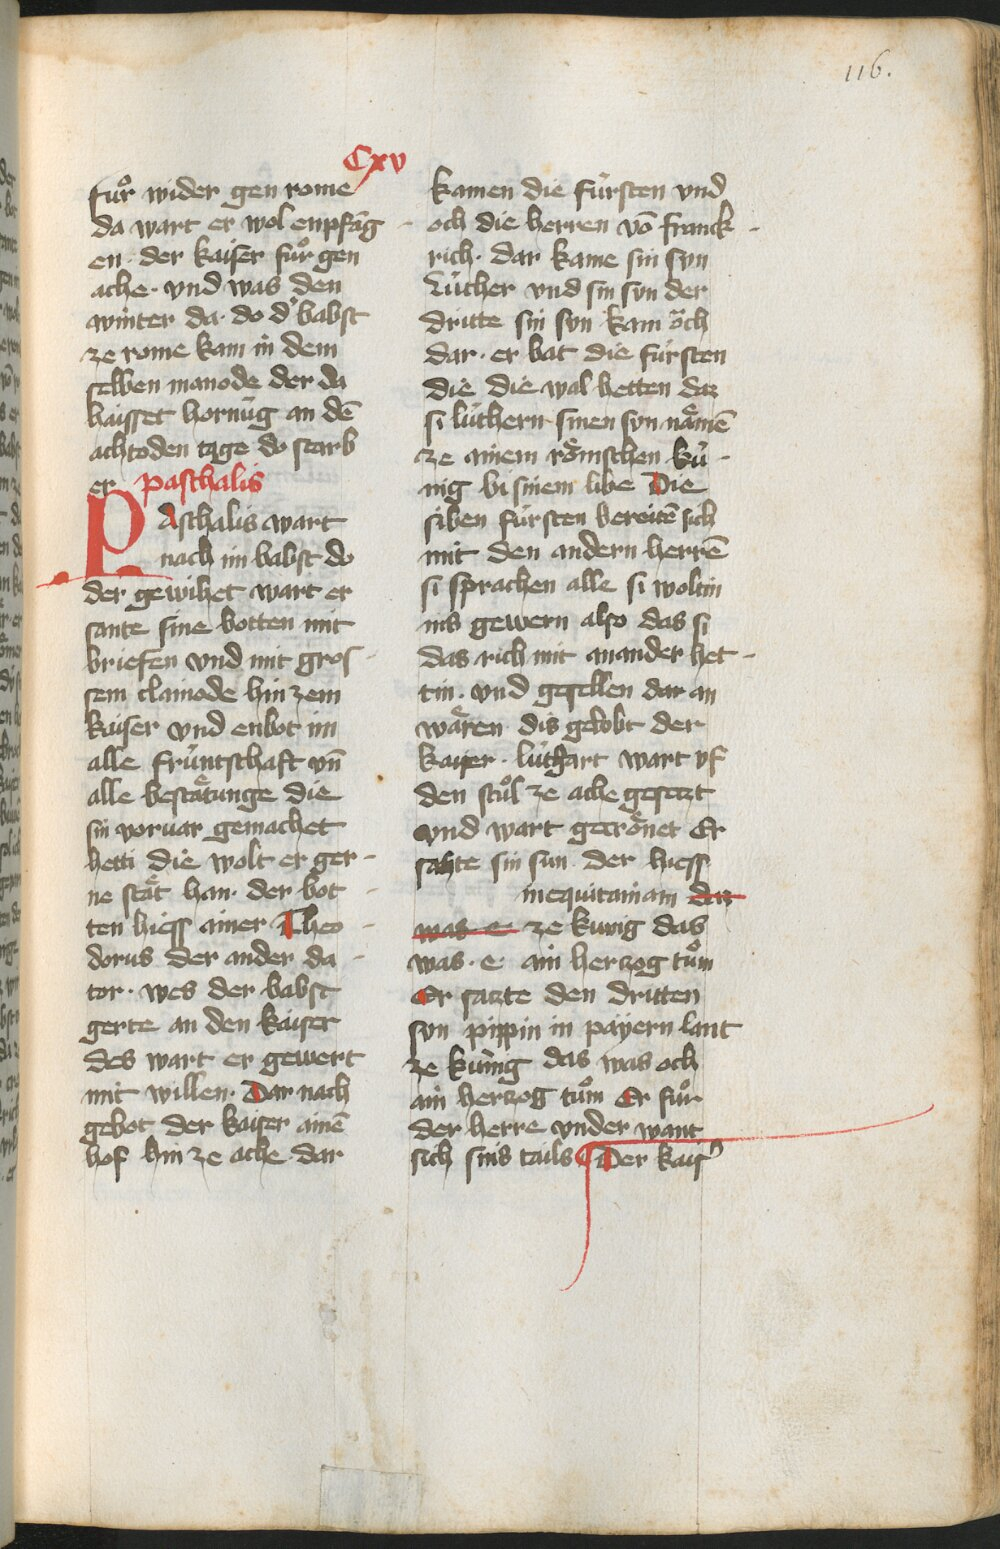 116.
Cxv
fuͦr wider gen rome
da wart er wol enpfāg
en· der kaiser fuͦr gen
ache· vnd was den
winter da· do d' babst
ze rome kam in dem
selben manode der da
haisset hornūg an dē
achtoden tage do starb
er paschalis
PAschalis wart
nach im babst· do
der gewihet wart er
sante sine botten mit
briefen vnd mit gros-
sem clainode hin zem
kaiser vnd enbot im
alle frúntschaft vn̄
alle bestaͤtunge die
sin vorvar gemachet
hetti die wolt er ger-
ne staͤt han· der bot-
ten hiess ainer Theo-
dorus der ander da-
tor· wes der babst
gerte an den kaiser
des wart er gewert
mit willen· Dar nach
gebot der kaiser ainē
hof hin ze ache dar
kamen die fúrsten vnd
och die herren vō franck-
rich· dar kame sin syn
Lúcher vnd sin syn der
dritte sin syn kam oͮch
dar· er bat die fúrsten
die die wal hetten daz
si lúthern sinen syn naͤmē
ze ainem roͤmschen kú-
nig bi sinem libe Die
siben fúrsten bereitē sich
mit den andern herrē
si sprachen alle si woltin
ins gewern also das si
das rich mit ananderhet-
tin· vnd gesellen dar an
waͤren dis gelobt der
kaiser· lúthart wart vf
den stuͦl ze ache gesetzt
vnd wart gecroͤnet Er
sahte sin sun der hiess
inequitaniam der
was e ze kunig das
was· e ain herzog tuͦm
Er satzte den dritten
syn pippin in payern lant
ze kúnig das was och
ain herzog tuͦm Er fuͦr
der herre vnder want
sich sins tails Der kais'